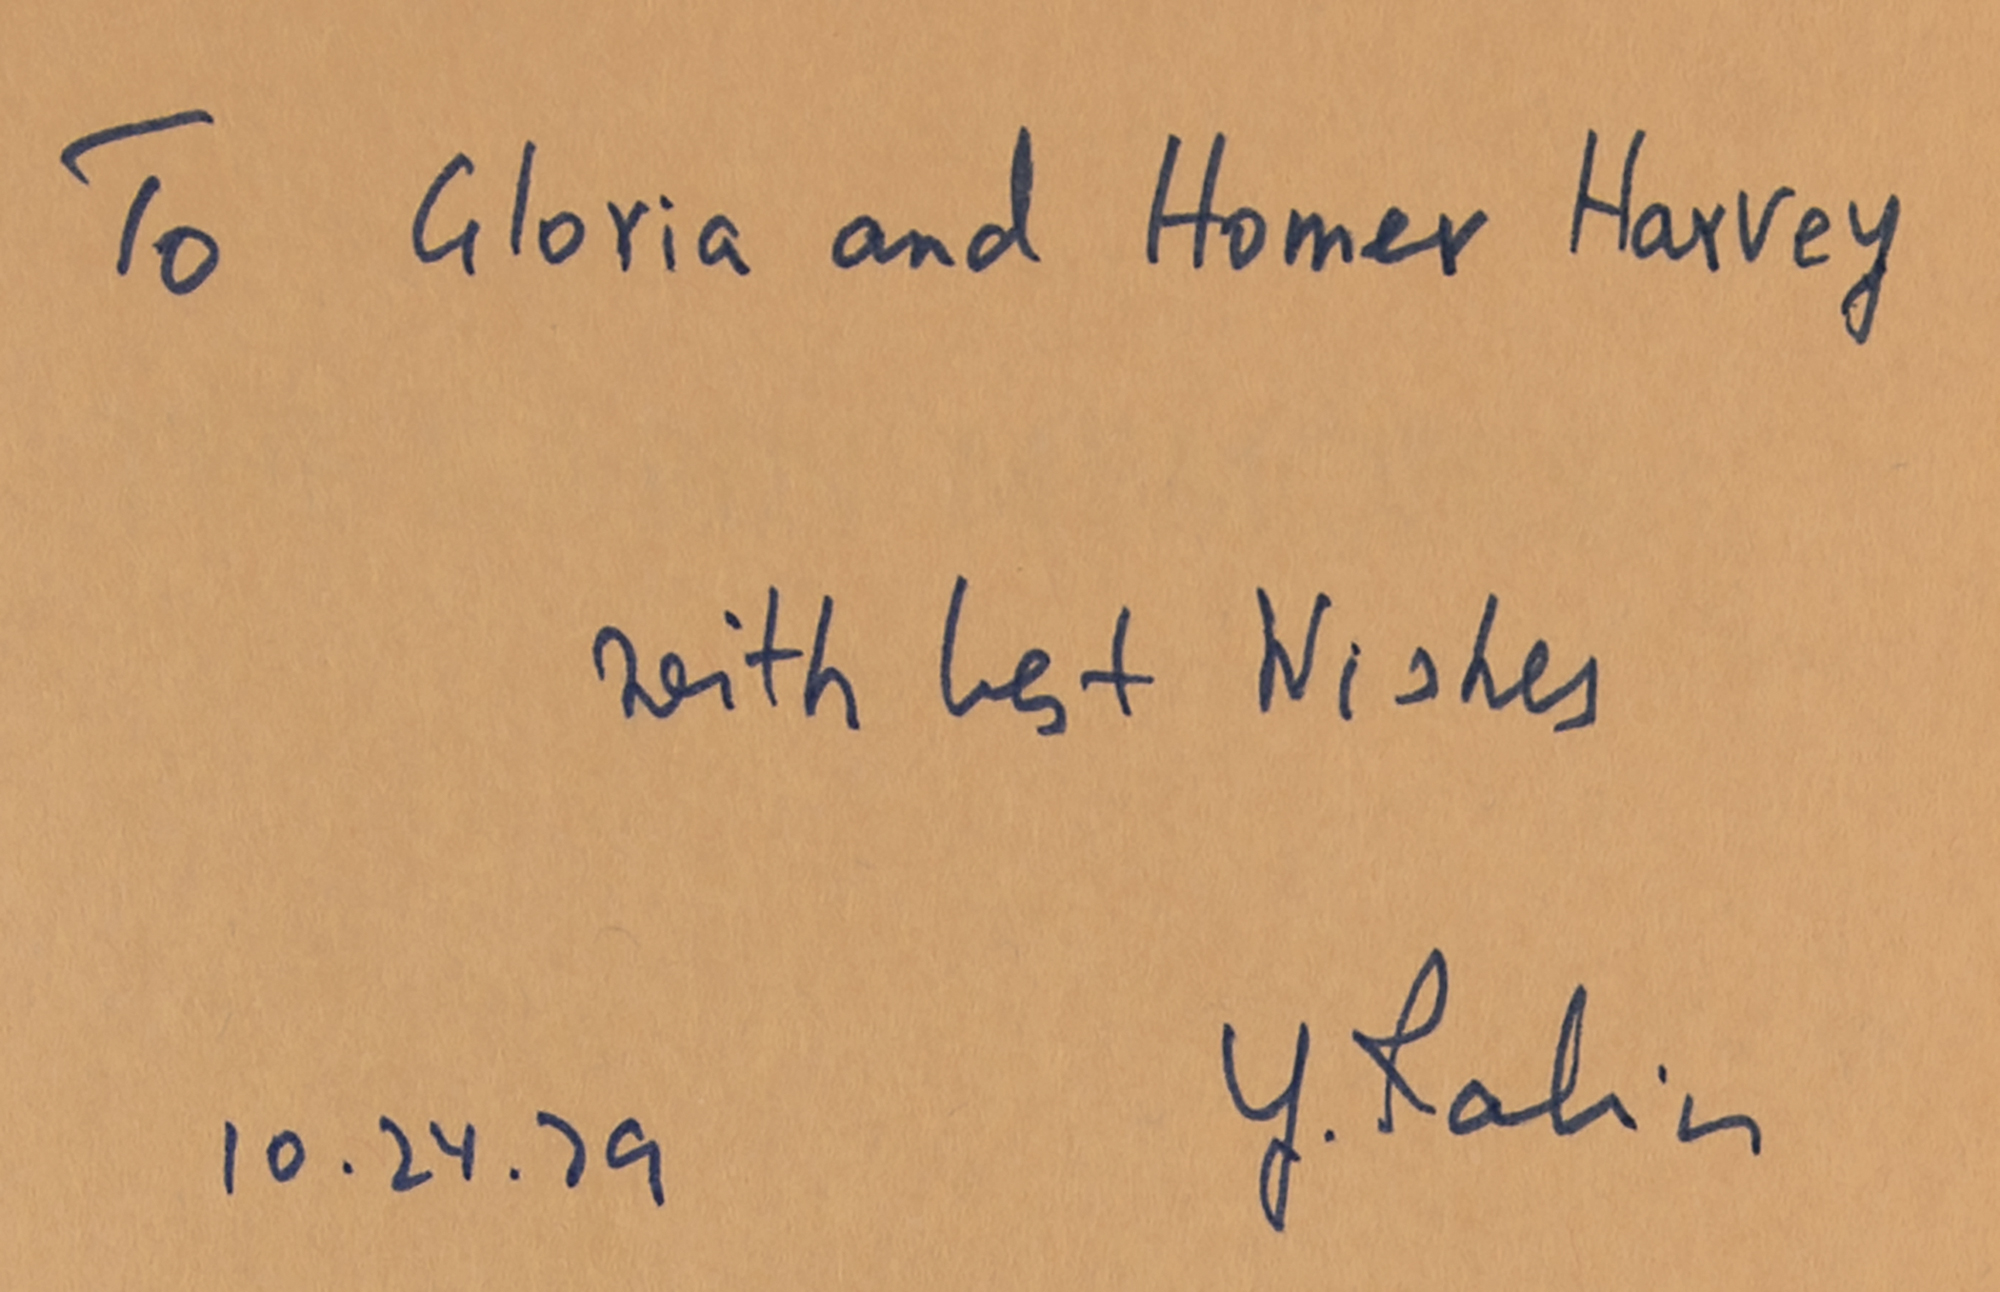 To Gloria and Homer Harvey
with best Wishes
Y. Rabin
10.24.79